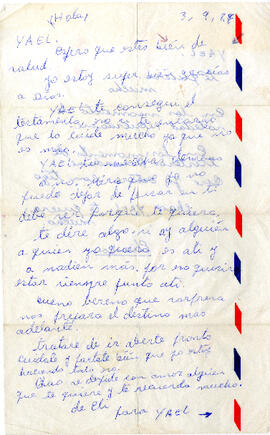 (Hola)
3, 9, 84
YAEL.
Espero que estes bién de
salud.
Yo estoy super bién gracias
a Dios.
YAEL te consegui el
testamento, no
que lo leiste mucho ya que
es mas.
YAEL
o no. pero yo no
puedo dejar de pensar en ti
debe ser porque te quiero,
te diré algo, si ay alguien
a quien yo quiero es ati y
a nadien más, por eso quiero
estar siempre junto ati.
bueno beremo que sorpresa
nos prepara el destino mas
adelante.
tratare de ir aberte pronto
cuidate y portate bién que yo estoy
haciendo todo
Chao se depide con amor alguien
que te quiere y te recuerda mucho.
de Eli
para YAEL →